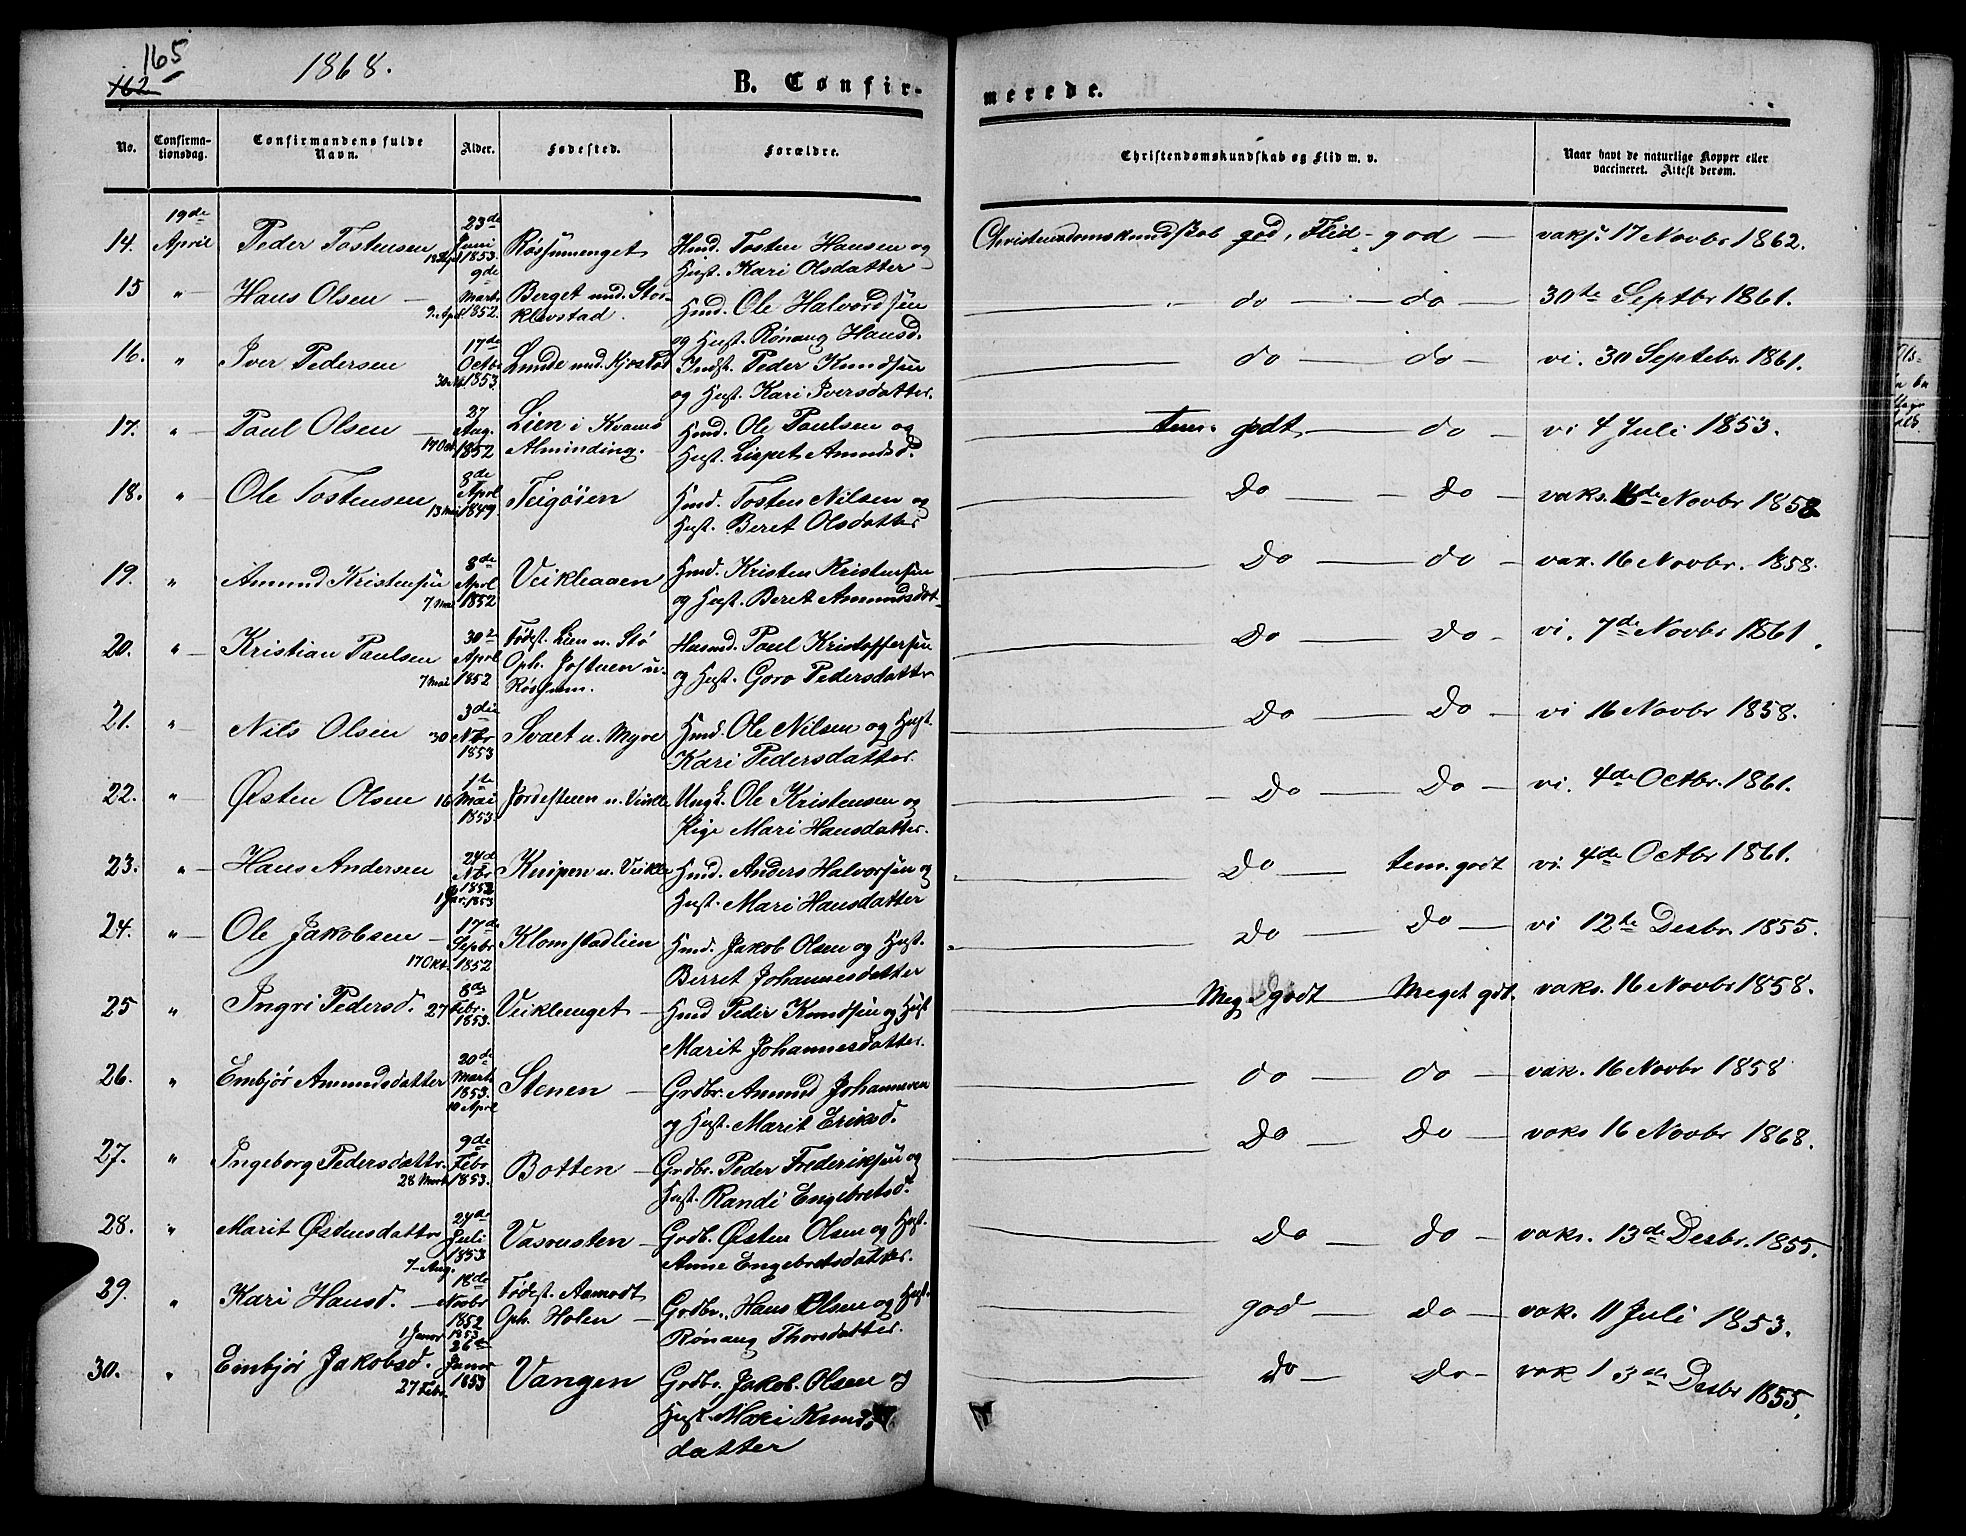 165
162
1868.
B. Confirmerede.
No. Confirmationsdag. Confirmandens fulde Navn. Alder. Fødested. Forældre. Christendomskundskab og Flid m. v. Naar havt de naturlige Kopper eller vaccineret. Attest derom.
14. 19de April Peder Tostensen 23de Juni 1853. Røssumenget Hmd. Tosten Hansen og Hust. Kari Olsdatter Christendomskundskab god, Flid god vaks. 17 Novbr 1862.
15 " Hans Olsen 9de Marts 1852. 9. Apl Berget und. Storklevstad. Hmd. Ole Halvordsen og Hust. Rønaug Hansd. do do 30te Septbr 1861.
16. " Iver Pedersen 17de Octb 1853. Lunde und. Kjorstad Indst. Peder Knudsen og Hust. Kari Iversdatter. do do vi. 30 Septebr 1861.
17. " Paul Olsen 27 Aug. 1852 17 Okt Lien i Kvams Alminding. Hmd. Ole Paulsen og Hust. Lispet Amundsd. tem. godt do vi 4 Juli 1853.
18. " Ole Tostensen 8de Aprl 1849. 13 Mai Teigøien Hmd. Tosten Nilsen og Hust. Beret Olsdatter Do Do vaks. 16de Novbr 1858
19. " Amund Kristensen 8de Aprl 1852 7 Mai Veikleaaen Hmd. Kristen Kristensen og Hust. Beret Amundsdat. Do do vak. 16 Novbr. 1858.
20. " Kristian Paulsen 30te Aprl 1852 7 Mai Fødest. Lien u. Stö Oph. Jostuen u. Røssum. Husmd. Paul Kristoffersen og Hust. Goro Pedersdatter Do Do vi. 7de Novbr 1861.
21. " Nils Olsen 3die Nbr 1853 30 Svaet u. Myre Hmd. Ole Nilsen og Hust. Kari Pedersdatter. Do Do vi 16 Novbr 1858.
22. " Østen Olsen 16 1ste Mai 1853. Jordestuen u. Veikle Ungk. Ole Kristensen og Pige Mari Hansdatter. Do Do vi. 4de Octbr. 1861.
23. " Hans Andersen 24de Nbr 1852 1 Jar. 1853 Knipen u. Veikle Hmd. Anders Halvorsen og Hust. Mari Hansdatter Do tem. godt vi. 4de Octbr 1861.
24. " Ole Jakobsen 17de Sepbr 1852 17 Okt. Klomstadlien Hmd. Jakob Olsen og Hust. Berret Johannesdatter Do Do vi 12te Desbr. 1855.
25 " Ingri Pedersd. 27 8de Febr. 1853. Veiklenget Hmd Peder Knudsen og Hust Marit Johannesdatter. Meg. godt Meget gdt. vaks. 16 Novbr 1858.
26. " Embjør Amundsdatter 20de Marts 1853. 10 April Stenen Grdbr. Amund Johannesen og Hust. Marit Eriksd. do do vak. 16 Novbr 1858
27. " Ingeborg Pedersdattr. 9de Febr 1853. 28 Marts Botten Grdbr. Peder Frederiksen og Hust. Randi Engebretsd. Do Do vaks 16 Novbr 1868.
28. " Marit Østensdattr 24de Juli 1853 7 Aug. Vasrusten Grdb. Østen Olsen og Hust. Anne Engebretsdatter. Do do vaks. 13de Desbr. 1855.
29. " Kari Hansd. 18de Novbr 1852 1 Januar 1853 Fødest. Aamodt Oph. Holen Grdbr. Hans Olsen og Hust. Rønaug Thorsdatter. god do vak. 11 Juli 1853.
30. " Embjør Jakobsd. 26de Januar 1853 27 Febr. Vangen Grdbr. Jakob Olsen og Hust. Mari Knudsdatter do Do vak 13de Desbr 1855.